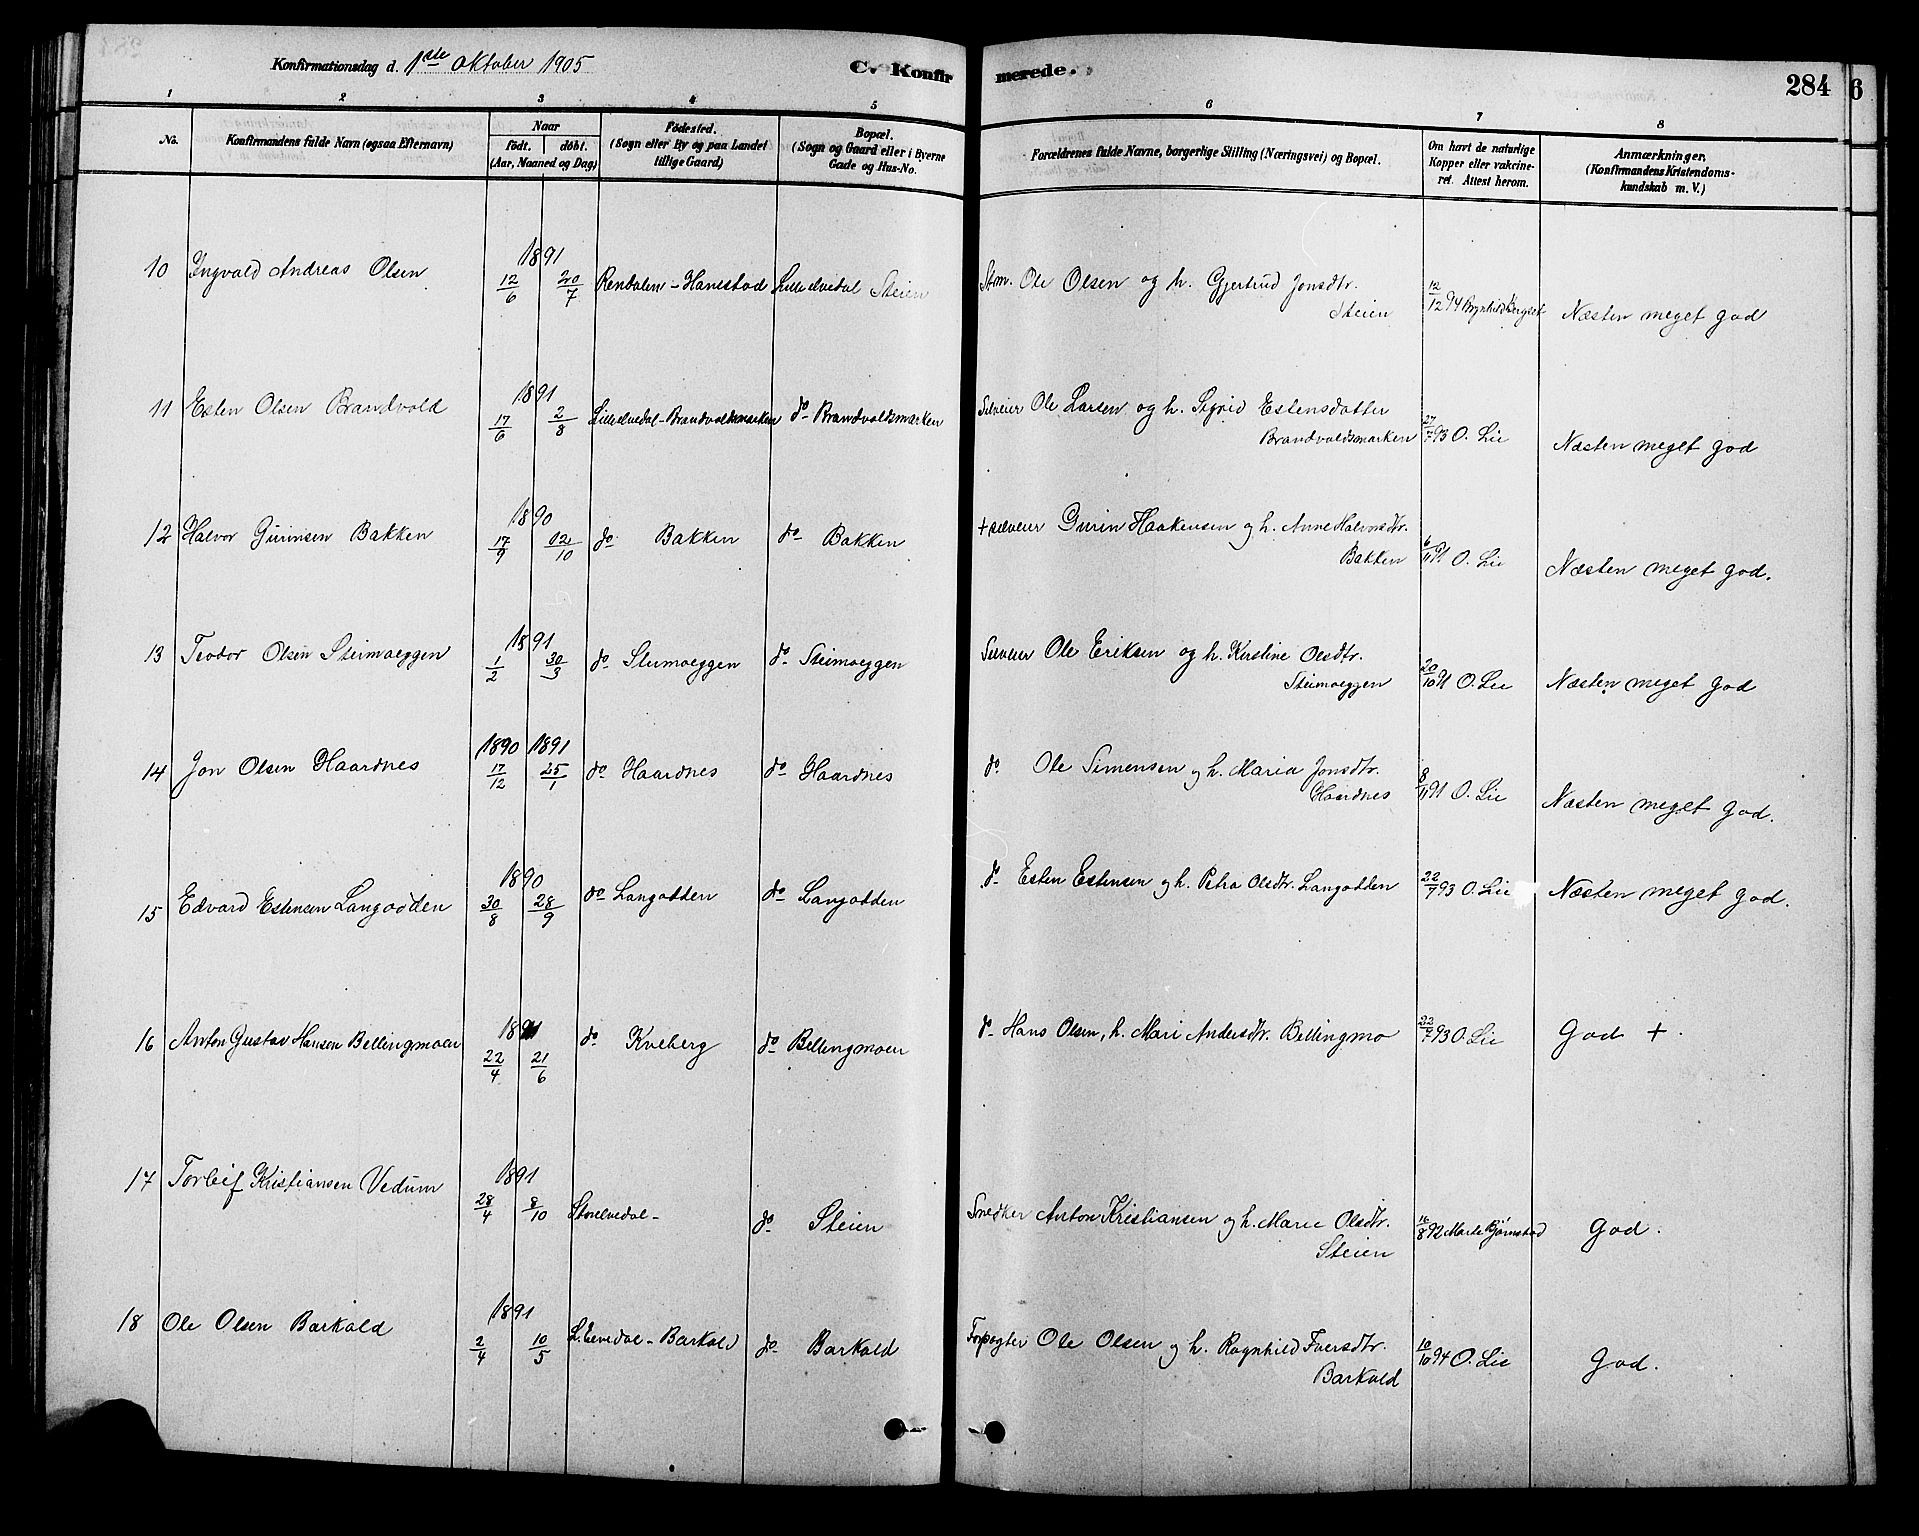 Konfirmationsdag d. 1ste Oktober 1905
C. Konfirmerede.
284
6
1 2 3 4 5 6 7 8
No. Konfirmandens fulde Navn (ogsaa Efternavn) Naar födt. döbt. (Aar, Maaned og Dag) Födested. (Sogn eller By og paa Landet tillige Gaard) Bopæl. (Sogn og Gaard eller i Byerne Gade og Hus-No. Forældrenes fulde Navne, borgerlige Stilling (Næringsvei) og Bopæl. Om havt de naturlige Kopper eller vakcineret. Attest herom. Anmærkninger, (Konfirmandens Kristendomskundskab m. V.)
10 Ingvald Andreas Olsen 1891 12/6 20/7 Rendalen - Hanestad Lilleelvedal Steien Stm. Ole Olsen og h. Gjertrud Jonsdtr. Steien 12/12 94 Brynhild Bergset Næsten meget god
11 Esten Olsen Brandvold 1891 17/6 2/8 Lilleelvedal - Brandvoldsmarken do Brandvoldsmarken Selveier Ole Larsen og h. Sigrid Estensdatter Brandvoldsmarken 27/7 93 O. Lie Næsten meget god
12 Halvor Gurinsen Bakken 1890 17/9 02/10 do Bakken do Bakken + selveier Gurin Haakensen og h. Anne Halvorsdtr. Bakken 6/11 91 O. Lie Næsten meget god.
13 Teodor Olsen Steimoeggen 1891 1/2 30/3 do Steimoeggen do Steimoeggen Selveier Ole Eriksen og h. Kerstine Olsdtr. Steimoeggen 20/10 91 O. Lie Næsten meget god
14 Jon Olsen Haardnes 1890 17/12 1891 25/1 do Haardnes do Haardnes do Ole Simensen og h. Maria Jonsdtr. Haardnes 8/11 91 O. Lie Næsten meget god.
15 Edvard Estensen Langodden 1890 30/8 28/9 do Langodden do Langodden do Esten Estensen og h. Petra Olsdtr. Langodden 22/7 93 O. Lie Næsten meget god.
16 Anton Gustav Hansen Bellingmoen 1891 22/4 21/6 do Kveberg do Bellingmoen do Hans Olsen, h. Mari Andersdtr. Bellingmo 22/7 93 O. Lie God +.
17 Torleif Kristiansen Vedum 1891 28/4 8/10 Storelvedal - do Steien Snedker Anton Kristiansen og h. Marie Olsdtr. Steien 16/8 92 Marte Bjørnstad God.
18 Ole Olsen Barkald 1891 2/4 10/5 L. Elvedal - Barkald do Barkald Forpagter Ole Olsen og h. Ragnhild Iversdtr. Barkald 10/10 94 O. Lie God.